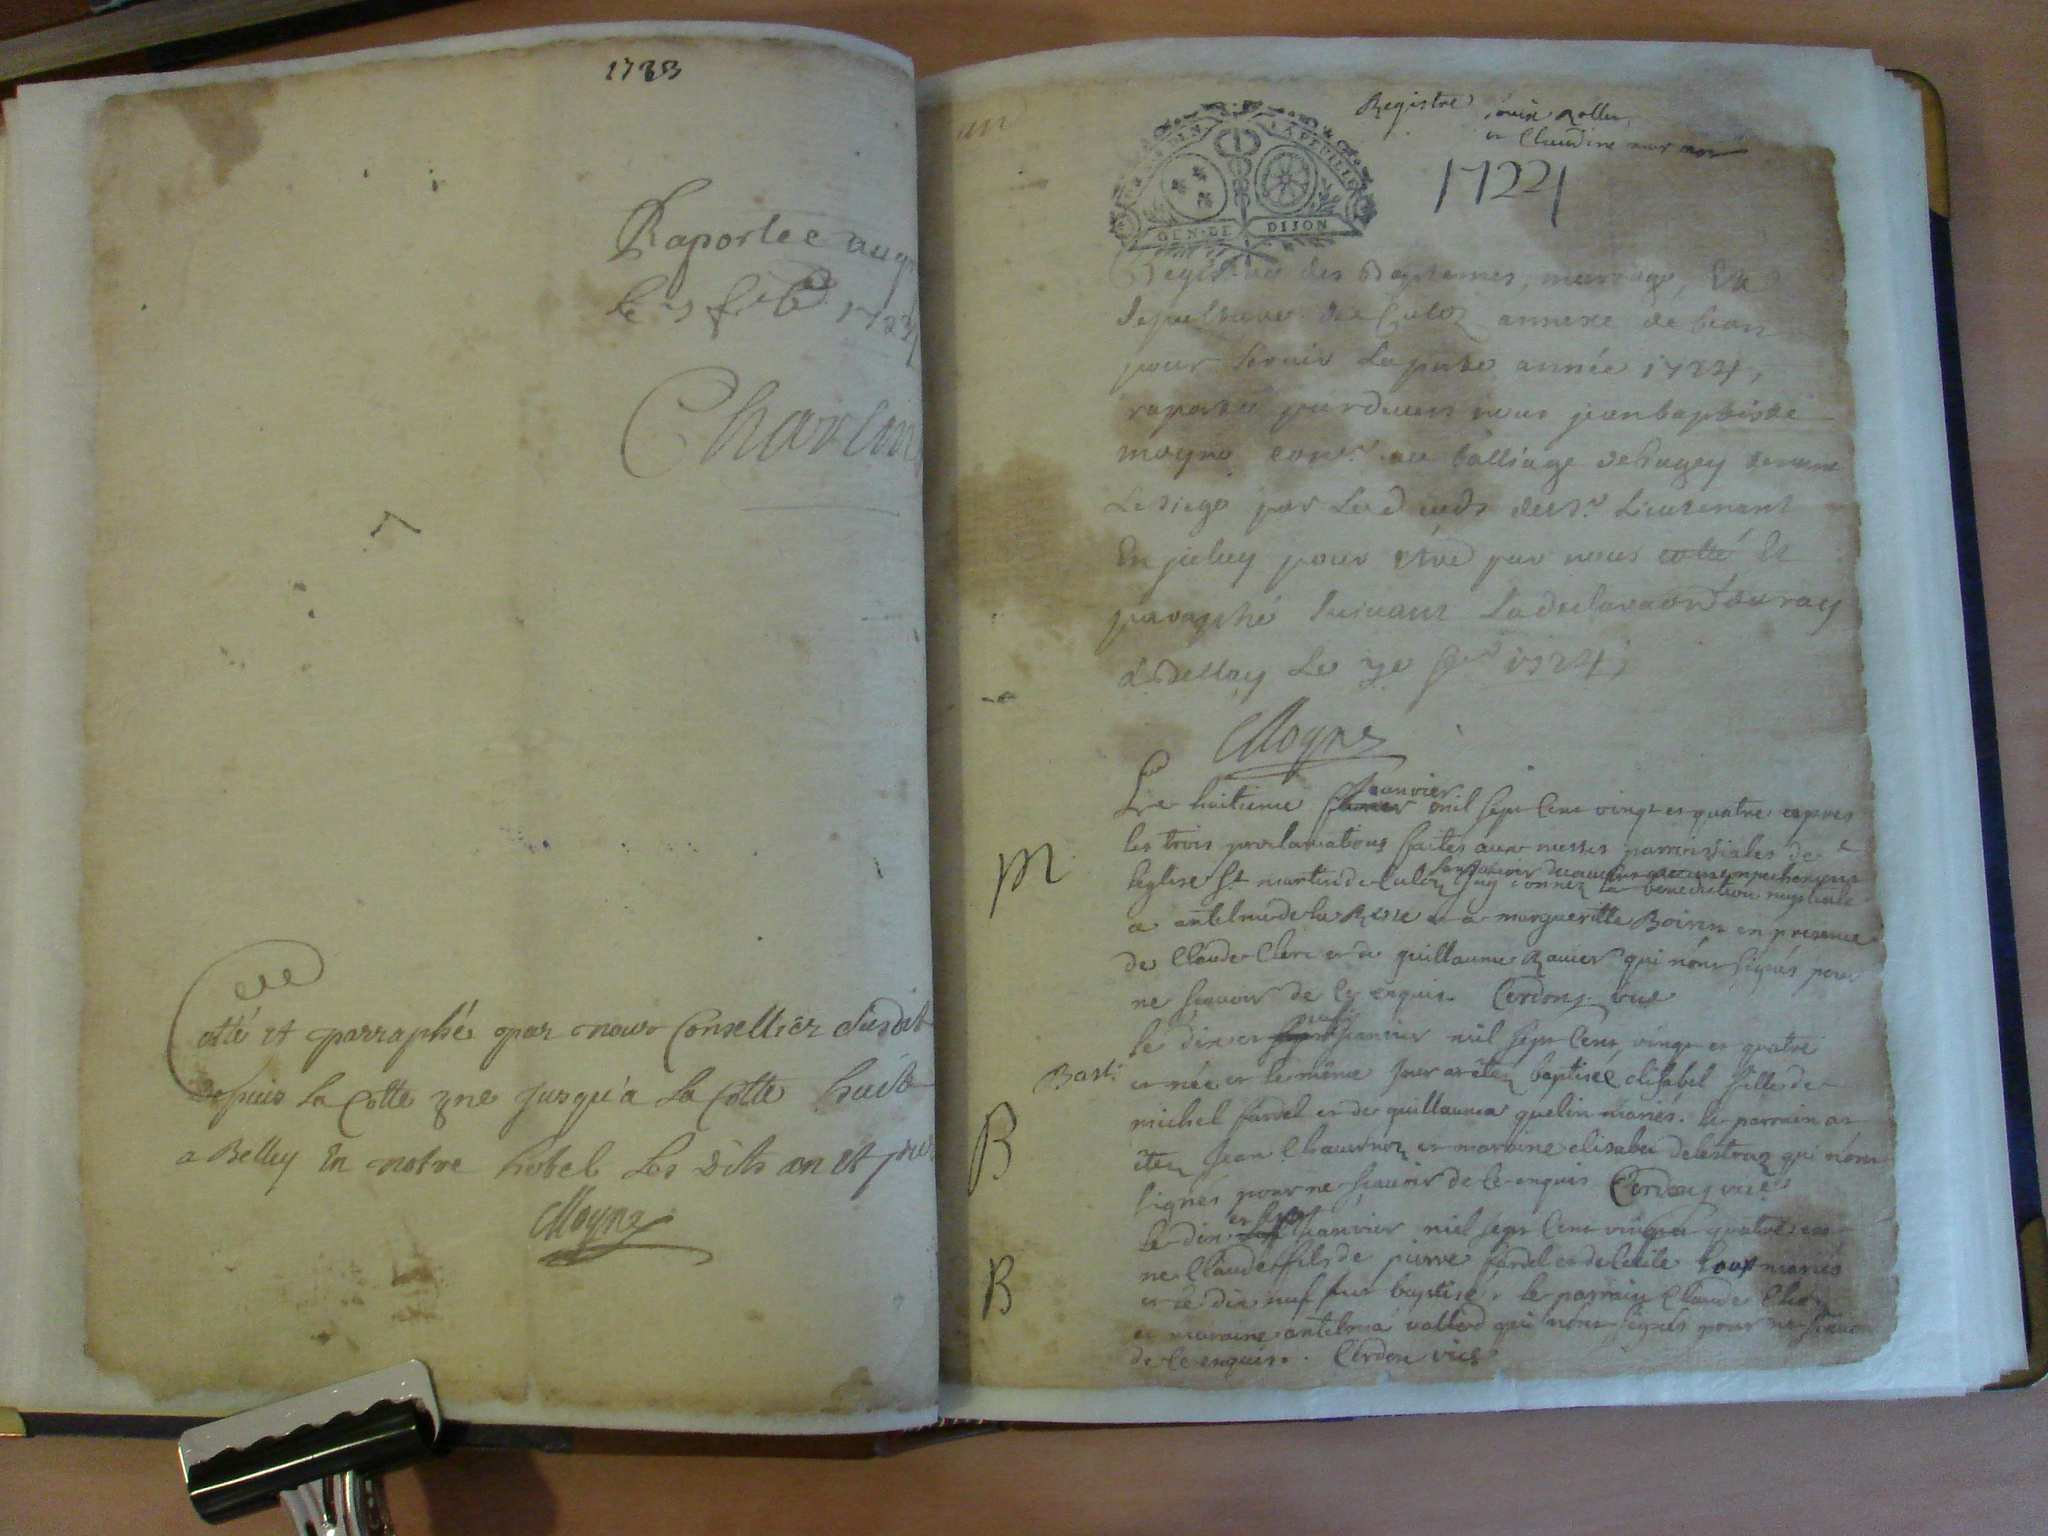 1723
Raportee au
le 3 feb 1723
Charlin
Cotté et parraphé par nous Conseillier susdit
depuis la Cotte une jusqu'a la Cotte huit
a Belley En notre hotel les dits an et jour
Moyne
Registre
et Claudine
1724
GEN · DE DIJON
Registre des Baptemes, mariage, Et
sepultures de Culoz annexe de bean
pour servir la pnte année 1724,
raporté pardevers nous jean baptiste
moyne conr. au balliage de bugey
Le siege par Lieutenant
pour etre par nous cotté Et
paraphé suivant La declaraon du roy
a Belley Le 1724
Moyne
Le huitieme fevrier Janvier mil sept cent vingt et quatre apres
les trois proclamations faites aux messes parroissiales de
leglise St martin de Culoz
Jay donnez la benediction nuptiale
a antelme de la et a margueritte Boirin en presence
de Claude Clerc et de guillaume Ravier qui n'ont signés pour
ne scavoir de ce enquis. Cerdon vice
le dix et Janvier mil sept cent vingt et quatre
Bast.
et née et le même jour at êtez baptisée elisabet fille de
michel fardel et de guillauma quelin mariés. le parrain at
êtez Jean Chauvinoz et maraine elisabet delestraz qui n'ont
signés pour ne scavoir de ce enquis Cerdon vice
le dix et Janvier mil sept cent vingt et quatre est
ne Claude fils de pierre fardel et de Cecile Loux mariés
et le dix neuf fut baptisé, le parrain Claude
et maraine antelma vallod qui n'ont signés pour ne scavoir
de ce enquis. Cerdon vice
M
B
B